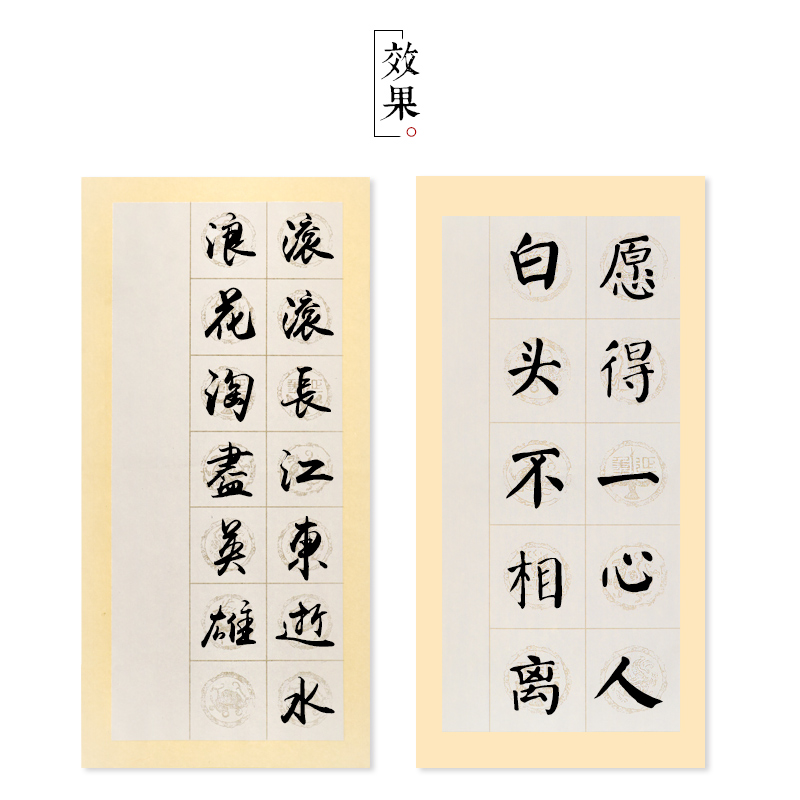 效果
滚滚長江東逝水
浪花淘盡英雄
愿得一心人
白头不相离